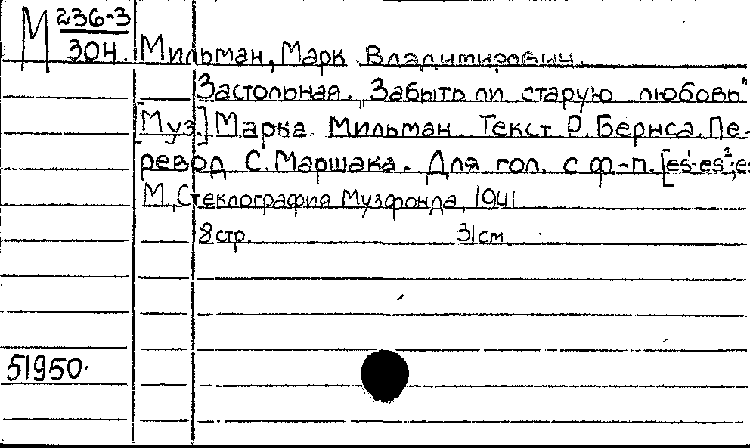 М 236-3
304. Мильман, Марк Владимирович.
Застольная. „Забыть ли старую любовь"
[Муз.] Марка Мильман. Текст Р. Бернса. Пе-
ревод С. Маршака. Для гол. с ф-п. [es¹-es²;
М., Стеклография Музфонда, 1941
8 стр. 31 см
51950.